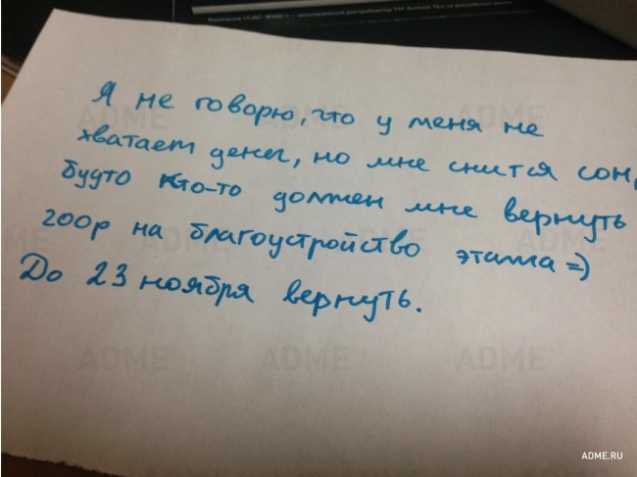 Я не говорю, что у меня не
хватает денег, но мне снится сон,
будто кто-то должен мне вернуть
200р на благоустройство этажа =)
До 23 ноября вернуть.
ADME
ADME.RU